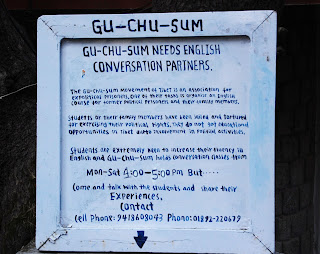 GU-CHU-SUM
GU-CHU-SUM NEEDS ENGLISH
CONVERSATION PARTNERS.
THE GU-CHU-SUM MOVEMENT OF TIBET IS AN ASSOCIATION FOR
EXPOLITICAL PRISONERS, ONE OF THEIR TASKS IS ORGANIZE AN ENGLISH
COURSE FOR FORMER POLITICAL PRISONERS AND THEIR FAMILY MEMBERS.
STUDENTS OR THEIR FAMILY MEMBERS HAVE BEEN JAILED AND TORTURED
FOR EXERCISING THEIR POLITICAL RIGHTS, THEY DO NOT GET EDUCATIONAL
OPPORTUNITIES IN TIBET INVOLVEMENT IN POLITICAL ACTIVITIES.
STUDENTS ARE EXTREMELY KEEN TO INCREASE THEIR FLUENCY IN
ENGLISH AND GU-CHU-SUM HOLDS CONVERSATION CLASSES FROM
MON-SAT 4:00-5:00PM BUT.....
COME AND TALK WITH THE STUDENTS AND SHARE THEIR
EXPERIENCES.
CONTACT
CELL PHONE: 9418608043 PHONO: 01892-220679